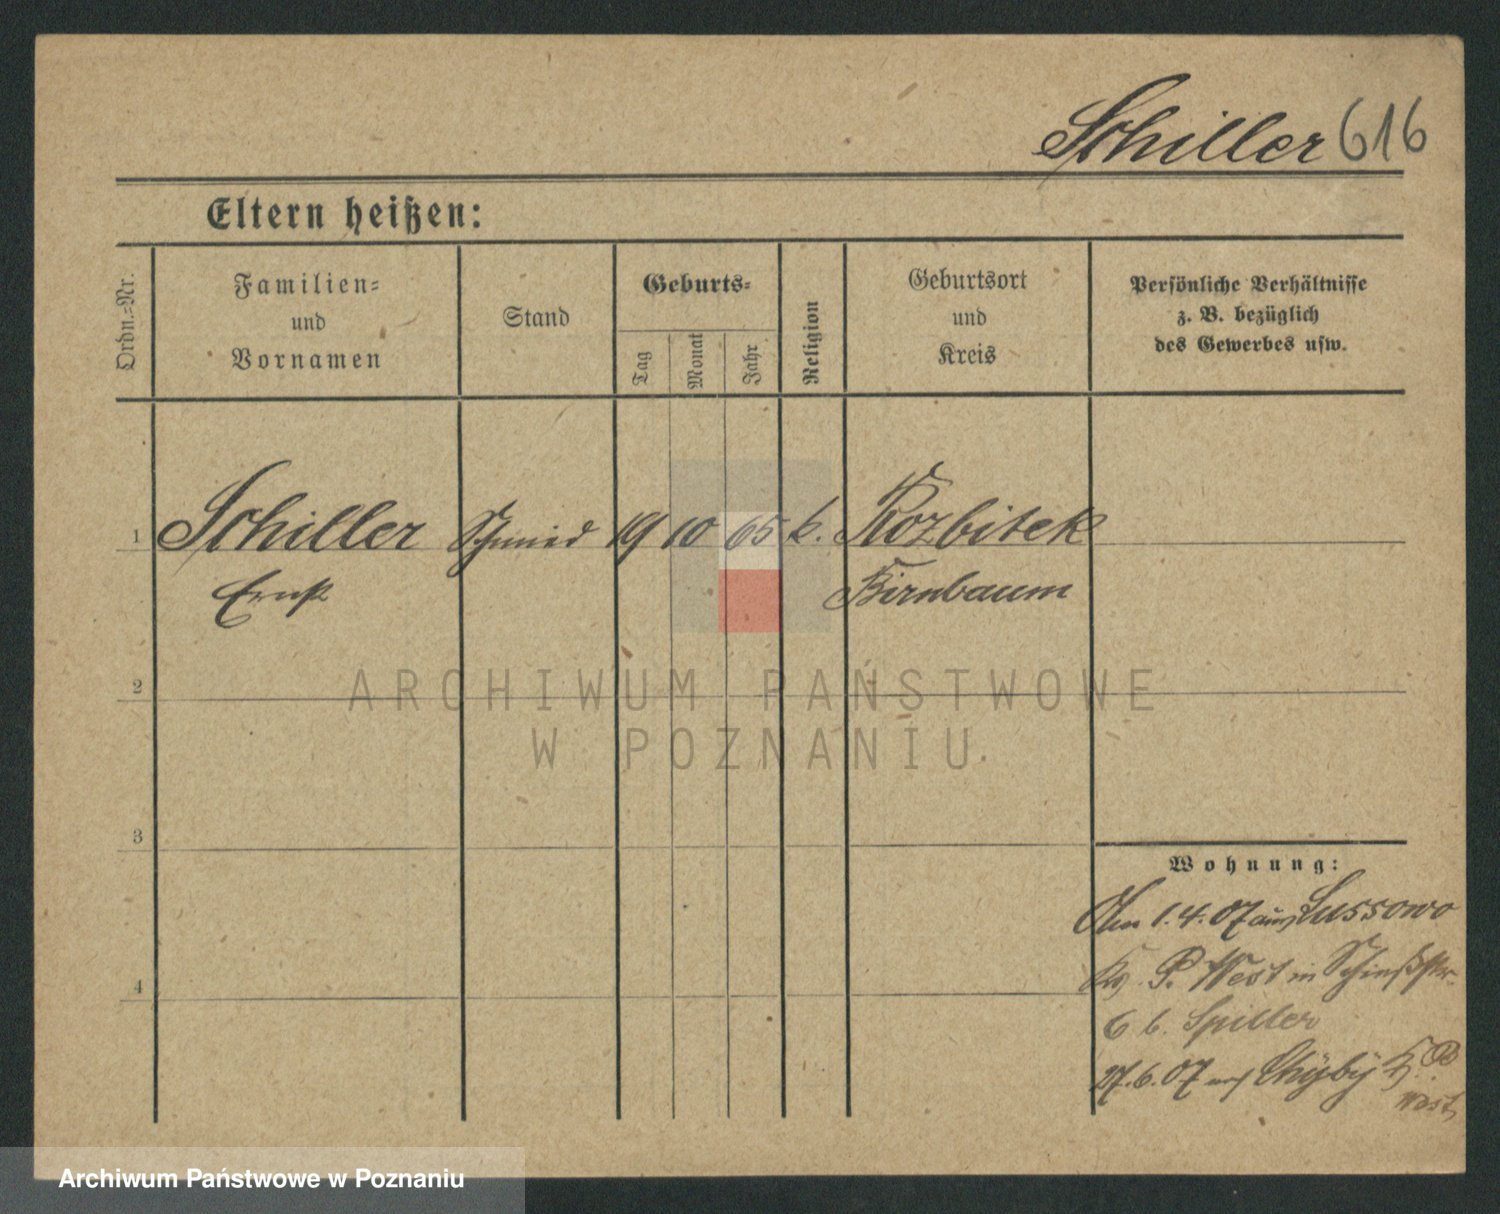 Schiller 616
Eltern heißen:
Ordn.=Nr.
Familien=
und
Vornamen
Stand
Geburts=
Tag
Monat
Jahr
Religion
Geburtsort
und
Kreis
Persönliche Verhältnisse
z. B. bezüglich
des Gewerbes usw.
1 Schiller Schmied 19 10 65 k. Rozbitek
Ernst Birnbaum
2
3
4
Wohnung:
Am 1.4.07 aus Lussowo
Krs. P. West in Schießstr.
6 b. Spiller
27.6.07 nach Chÿbÿ K. P.
West
ARCHIWUM PAŃSTWOWE
W POZNANIU
Archiwum Państwowe w Poznaniu